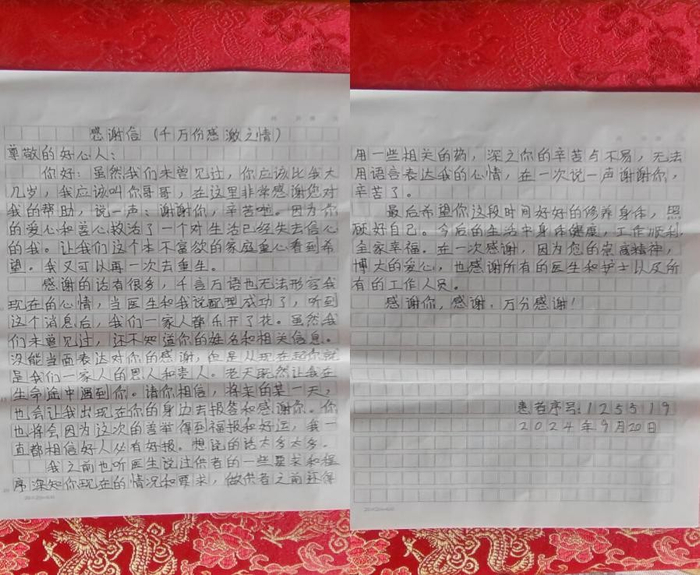 感谢信(千万份感激之情)
尊敬的好心人:
你好:虽然我们未曾见过,你应该比我大
几岁,我应该叫你哥哥,在这里非常感谢您对
我的帮助,说一声:谢谢你,辛苦啦。因为你
的爱心和善心救活了一个对生活已经失去信心
的我。让我们这个本不富欲的家庭重心看到希
望。我又可以再一次去重生。
感谢的话有很多,千言万语也无法形容我
现在的心情,当医生和我说配型成功了,听到
这个消息后,我们一家人都乐开了花。虽然我
们未曾见过,还不知道你的姓名和相关信息。
没能当面表达对你的感谢,但是从现在起你就
是我们一家人的恩人和贵人。老天既然让我在
生命途中遇到你。请你相信,将来的某一天,
也会让我出现在你的身边去报答和感谢你。你
也将会因为这次的善举得到福报和好运,我一
直都相信好人必有好报。想说的话太多太多。
我之前也听医生说过供者的一些要求和程
序深知你现在的情况和要求,做供者之前还得
用一些相关的药,深之你的辛苦与不易,无法
用语言表达我的心情,在一次说一声谢谢你,
辛苦了。
最后希望你这段时间好好的修养身体,照
顾好自己。今后的生活中身体健康,工作顺利
全家幸福。在一次感谢,因为您的崇高精神,
博大的爱心,也感谢所有的医生和护士以及所
有的工作人员。
感谢你,感谢,万分感谢!
患者序号:125319
2024年9月20日